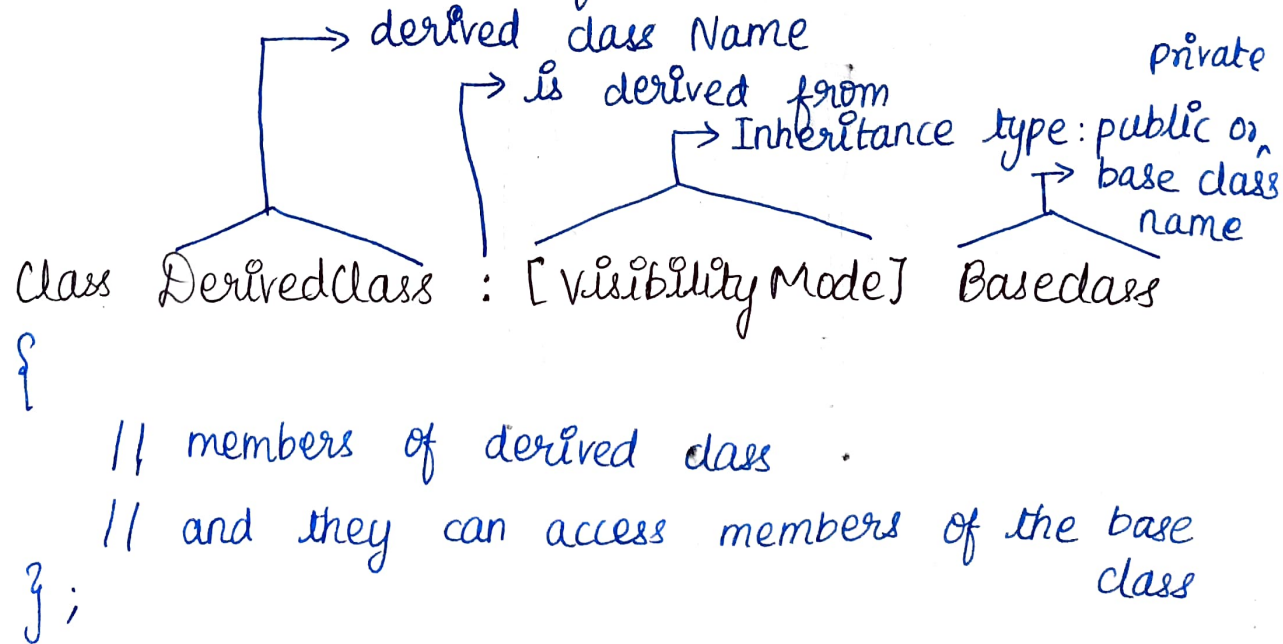 derived class Name
private
is derived from
Inheritance type: public or
base class
name
Class DerivedClass : [Visibility Mode] Baseclass
{
// members of derived class
// and they can access members of the base
class
};